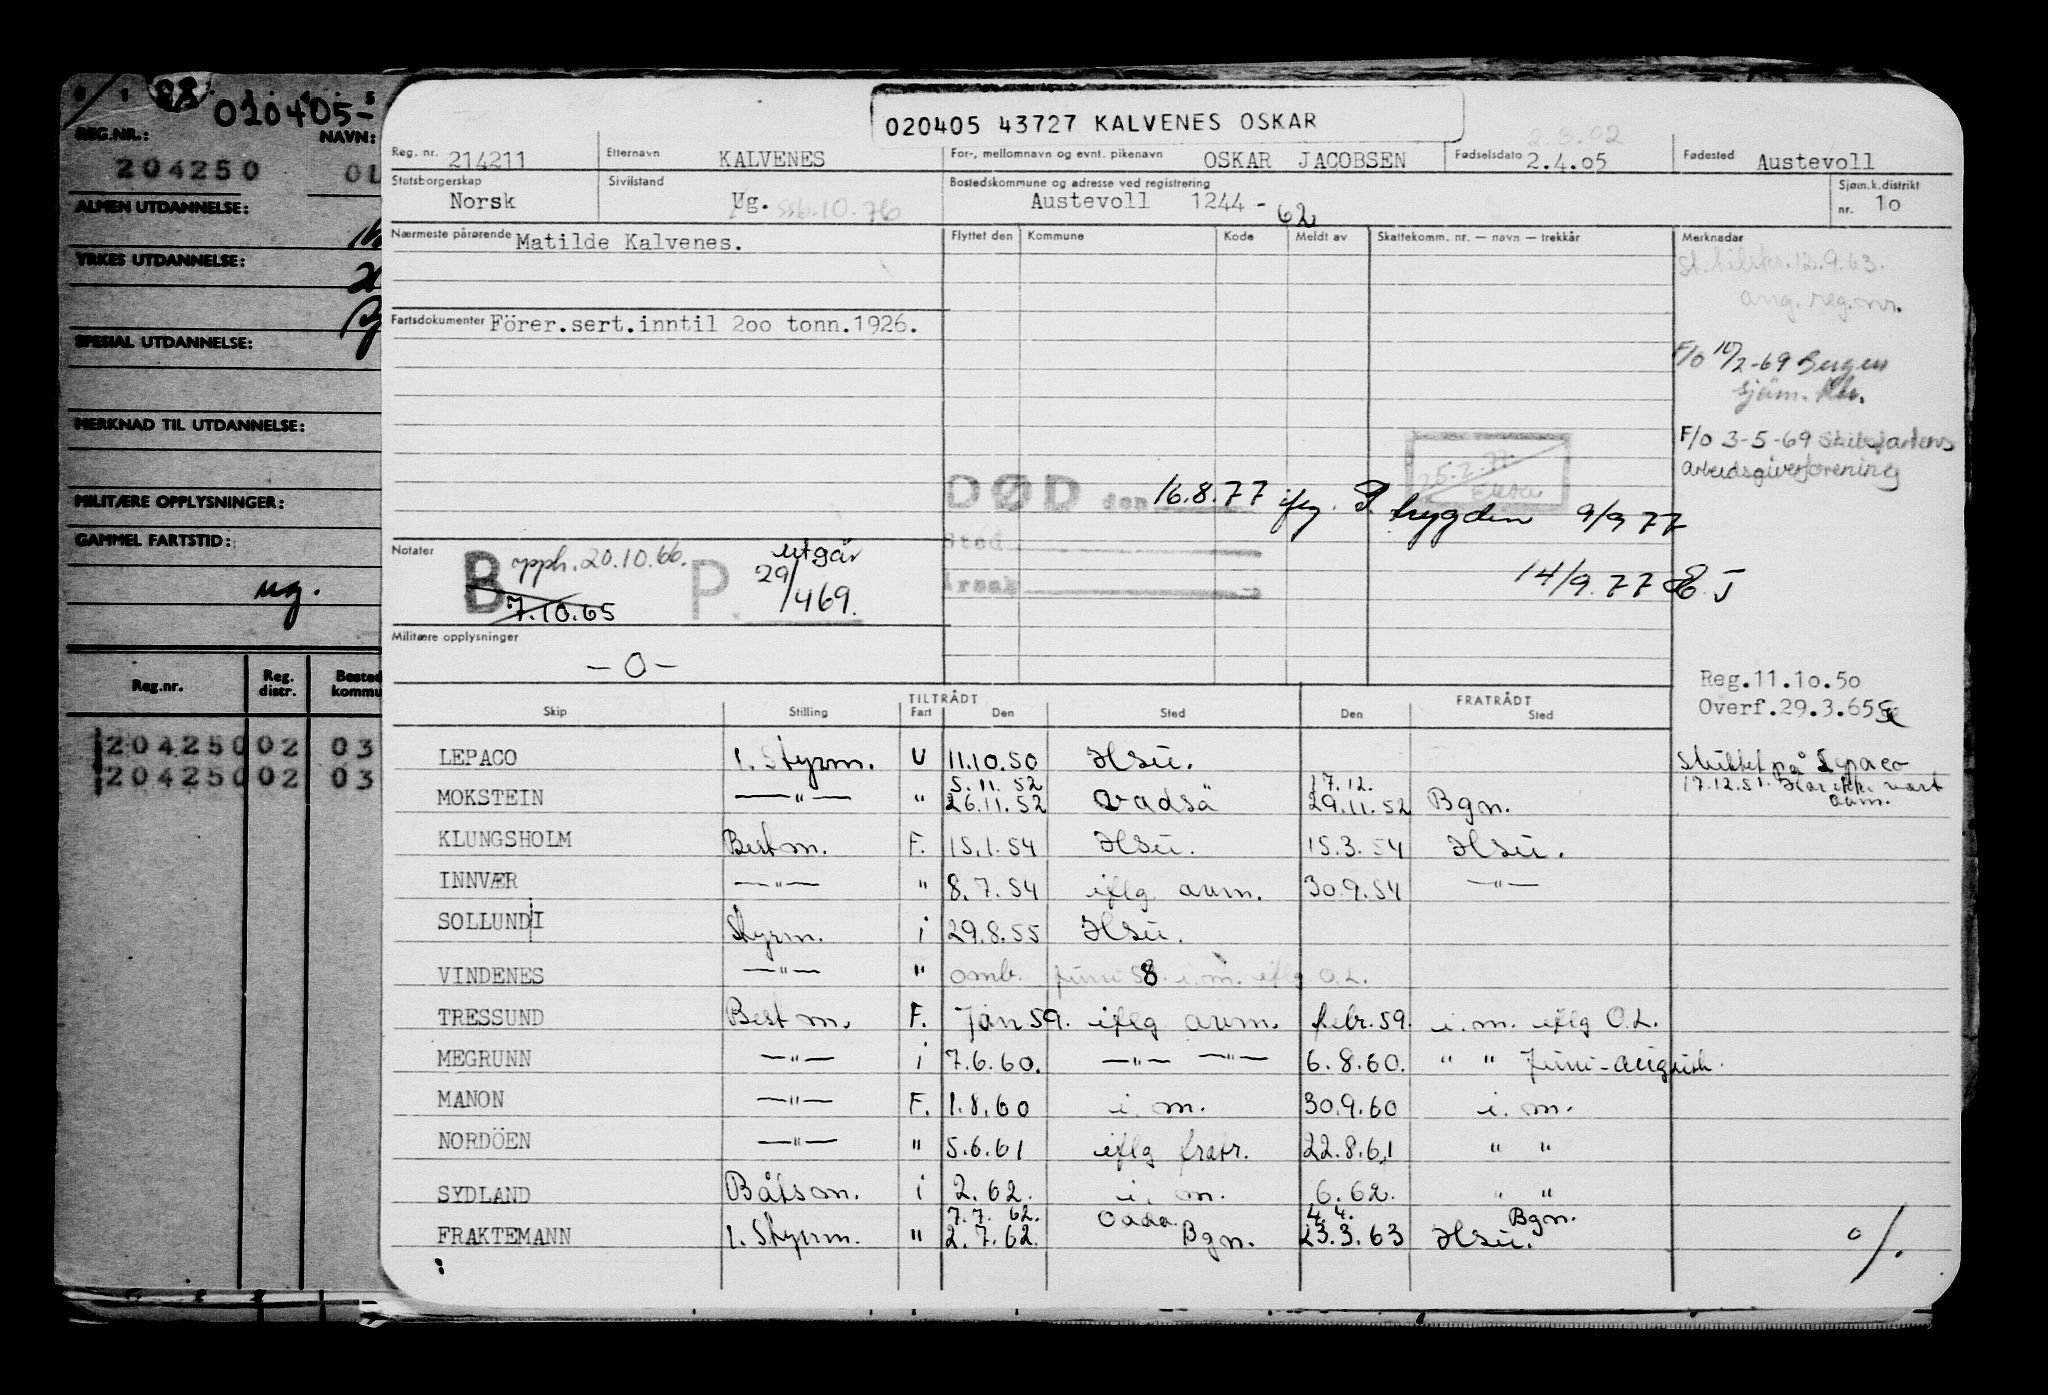 020405-
REG.NR.: NAVN:
204250 OL
ALMEN UTDANNELSE:
YRKES UTDANNELSE:
SPESIAL UTDANNELSE:
MERKNAD TIL UTDANNELSE:
MILITÆRE OPPLYSNINGER:
GAMMEL FARTSTID:
ug.
Reg.nr. Reg. distr. Bosted kommu
204250 02 03
204250 02 03
020405 43727 KALVENES OSKAR
2.3.02
Reg. nr. 214211 Etternavn KALVENES For-, mellomnavn og evnt. pikenavn OSKAR JACOBSEN Fødselsdato 2.4.05 Fødested Austevoll
Statsborgerskap Norsk Sivilstand Ug. ssb.10.76 Bostedskommune og adresse ved registrering Austevoll 1244 - 62 Sjøm.k.distrikt nr. 10
Nærmeste pårørende Matilde Kalvenes. Flyttet den Kommune Kode Meldt av Skattekomm. nr. — navn — trekkår Merknadar
St. tilskr. 12.9.63.
ang. reg.nr.
Fartsdokumenter Förer.sert.inntil 200 tonn.1926.
F/o 10/2-69 Bergen
sjøm. ktr.
F/o 3-5-69 Skibsfartens
arbeidsgiverforening
25.2.77.
DØD den 16.8.77 iflg. P. trygden 9/9 77
Sted
Årsak
14/9.77 EJ
Notater B opph. 20.10.66. P. utgår
7.10.65 29/4 69.
Militære opplysninger
— O —
Reg.11.10.50
Overf.29.3.65
TILTRÅDT FRATRÅDT
Skip Stilling Fart Den Sted Den Sted
LEPACO 1. Styrm. U 11.10.50 Hsu. Skiftet på Lepaco
5.11.52 17.12. 17.12.51. Har ikke vært
MOKSTEIN —"— " 26.11.52 Vadsö 29.11.52 Bgn. avm.
KLUNGSHOLM Bestm. F. 15.1.54 Hsu. 15.3.54 Hsu.
INNVÆR —"— " 8.7.54 iflg avm. 30.9.54 —"—
SOLLUNDI Styrm. i 29.8.55 Hsu.
VINDENES —"— " omb. juni 58. i.m. iflg O.L.
TRESSUND Bestm. F. Jan 59. iflg avm. febr. 59. i.m. iflg O.L.
MEGRUNN —"— i 7.6.60. —"— —"— 6.8.60. " " Juni-august.
MANON —"— F. 1.8.60 i.m. 30.9.60 i.m.
NORDÖEN —"— " 5.6.61 iflg fratr. 22.8.61 " "
SYDLAND Båtsm. i 2.62. i.m. 6.62. " "
7.7.62. Odda. 4.4. Bgn.
FRAKTEMANN 1. Styrm. " 2.7.62. Bgn. 23.3.63 Hsu.
%.